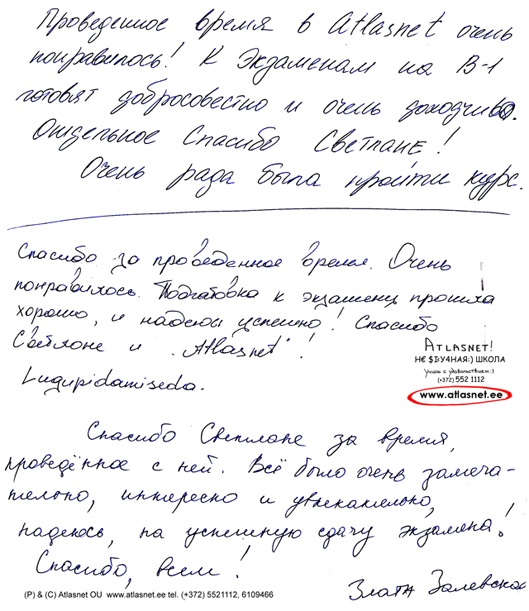 Проведенное время в Atlasnet очень
понравилось! К Экзаменам на В-1
готовят добросовестно и очень доходчиво.
Отдельное Спасибо Светлане!
Очень рада была пройти курс.
Спасибо за проведенное время. Очень
понравилось. Подготовка к экзамену прошла
хорошо, и надеюсь успешно! Спасибо
Светлане и "Atlasnet"!
Lugupidamisega.
ATLASNET!
НЕ $КУ4НАЯ:) ШКОЛА
Учись с удовольствием:)
(+372) 552 1112
www.atlasnet.ee
Спасибо Светлане за время,
проведённое с ней. Всё было очень замеча-
тельно, интересно и увлекательно,
надеюсь, на успешную сдачу экзамена!
Спасибо, всем!
Злата Залевская
(P) & (C) Atlasnet OU www.atlasnet.ee tel. (+372) 5521112, 6109466